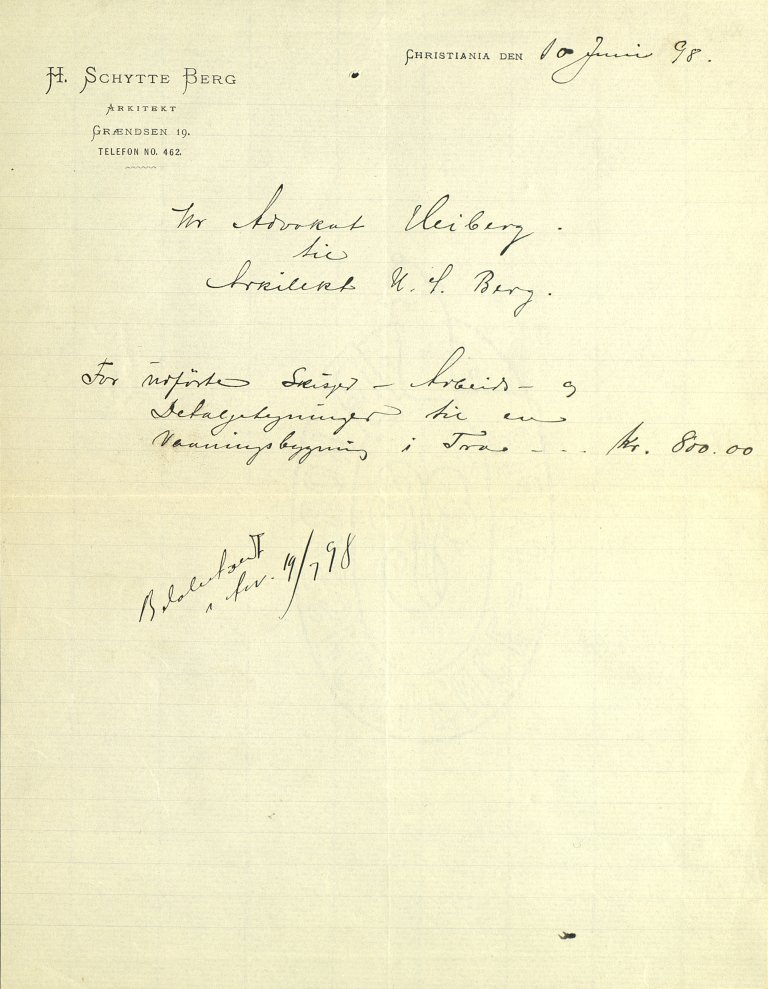 CHRISTIANIA DEN 10 Juni 98.
H. SCHYTTE BERG
ARKITEKT
GRÆNDSEN 19.
TELEFON NO. 462.
Hr Advokat Heiberg.
til
Arkitekt H. S. Berg.
For udførte Skisser - Arbeids - og
Detaljetegninger til en
Vaaningsbygning i Træ - - - Kr. 800.00
19/7 98